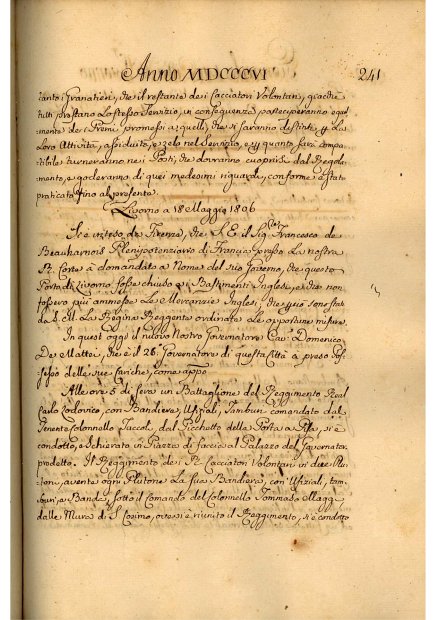 Anno MDCCCVI 241
tanto i Granatieri, che il restante de i Cacciatori Volontari, giacchè
tutti prestano lo stesso Servizio, in conseguenza parteciperanno egual
mente de i Premi promessi a quelli, che si saranno distinti p la
loro Attività, assiduità, e zelo nel Servizio, e p quanto sarà compa
tibile turneranno nei Posti, che dovranno cuoprirsi dal Regola
mento, e goderanno di quei medesimi riguardi, conforme è stato
praticato fino al presente.
Livorno a 18 Maggio 1806
Si è inteso da Firenze, che S. E. il Sig.re Francesco de
Beauharnois Plenipotenziario di Francia presso la nostra
R. Corte à domandato a Nome del suo Governo, che questo
Porto di Livorno fosse chiuso ai Bastimenti Inglesi, e che non
fossero più ammesse le Mercanzie Inglesi, che però sono state
da S. M. La Regina Reggente ordinate le opportune misure.
In quest'oggi il nuovo Nostro Governatore Cav. Domenico
De Mattei, che è il 26. Governatore di questa Città à preso pos
sesso delle sue cariche, come app.o
Alle ore 5 di sera un Battaglione del Reggimento Real
Carlo Lodovico, con Bandiera, Ufiziali, Tamburi comandato dal
Tenente Colonnello Jaccoli, dal Picchetto della Porta a Pisa, si è
condotto, e schierato in Piazza di faccia al Palazzo del Governator
predetto. Il Reggimento de i R. Cacciatori Volontari in dieci Plu
toni, avente ogni Plutone la sua Bandiera, con Ufiziali, tam
buri, e Banda, sotto il Comando del Colonnello Tommaso Maggi,
dalle Mura di S. Cosimo, ove si è riunito il Reggimento, si è condotto